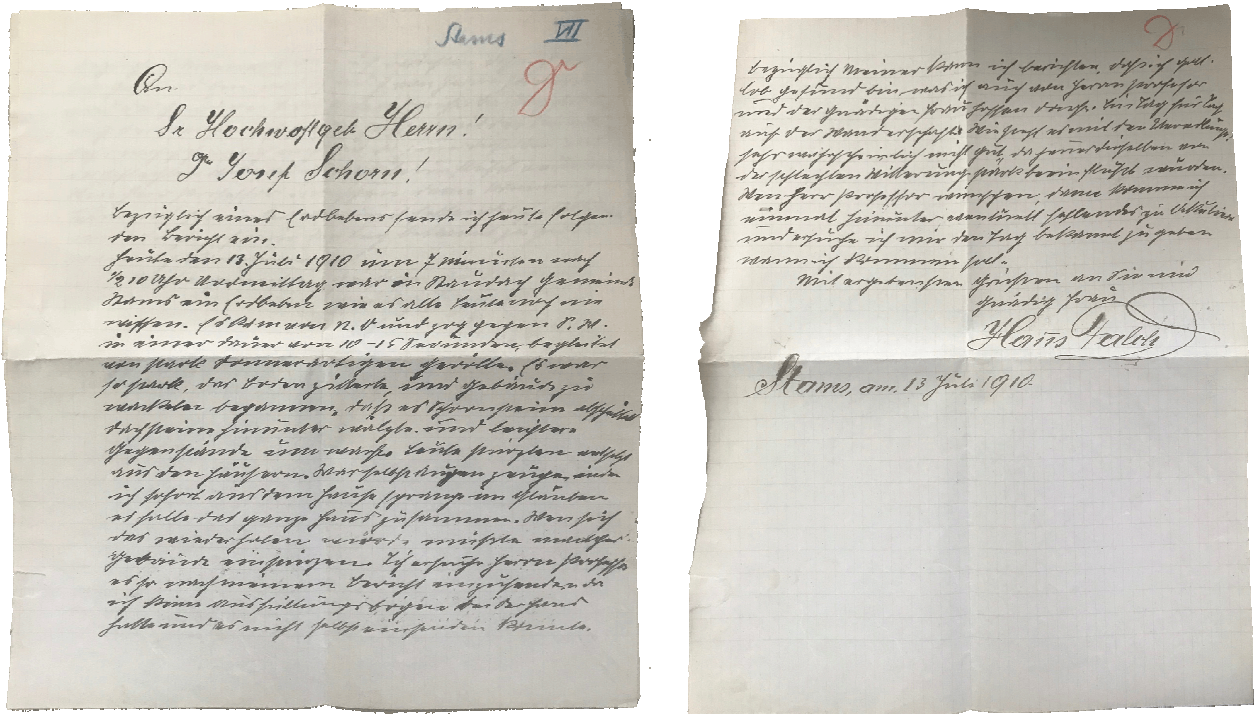 Stams VII
An
Sr Hochwohlgeb Herrn!
Dr Josef Schorn!
Bezüglich eines Erdbebens sende ich heute folgen
den Bericht ein.
Heute den 13 Juli 1910 um 7 Minuten nach
1/2 10 Uhr Vormittag war in Staudach Gemeinde
Stams ein Erdbeben wie es alle Leute noch nie
wissen. Es kam von N. O und zog gegen S. W.
in einer Dauer von 10-15 Secunden, begleitet
von stark donnerartigen Gerölle. Es war
so stark, das Boden zitterte, und Gebäude zu
wackeln begannen, daß es Schornsteine abschüttelte
Dachsteine hinunter wälzte und leichtere
Gegenstände um warf. Leute stürzten entsetzt
aus den Häusern. War selbst Augenzeuge, indem
ich sofort aus dem Hause sprang im Glauben
es falle das ganze Haus zusammen. Wen sich
das wiederholen würde müßte mancher
Gebäude einstürzen. Ich ersuche Herrn Professor
es so nach meinem Bericht einzusenden da
ich kein Ausfüllungsbögen bei der Hand
hatte und es nicht selbst einsenden konnte.
Bezüglich meiner kann ich berichten, daß ich gott-
lob gesund bin, was ich auch von Herrn Professor
und der gnädigen Frau hoffen darf. Bin Tag für Tag
auf der Wanderschaft. Wie geht es mit den
sehr wahrscheinlich nicht gut, da dieselben von
der schlechten Witterung stark beeinflußt wurden.
Wen Herr Professor wünschen, dann komme ich
einmal hinunter eventuell fehlendes zu
und ersuche ich mir den Tag bekannt zu geben
wann ich kommen soll.
Mit ergebensten Grüßen an Sie und
gnädig Frau
Hans
Stams, am. 13 Juli 1910.